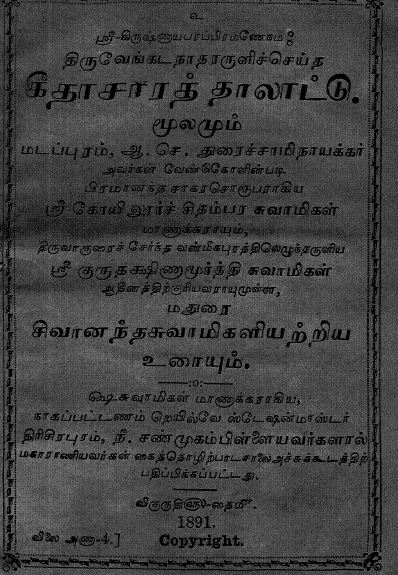 உ
ஸ்ரீ-கிருஷ்ணாயபரப்பிரமணேநம:
திருவேங்கடநாதரருளிச்செய்த
கீதாசாரத் தாலாட்டு.
மூலமும்
மடப்புரம், ஆ. செ. துரைச்சாமிநாயக்கர்
அவர்கள் வேண்டுகோளின்படி
பிரமானந்த சாகரசொரூபராகிய
ஸ்ரீ கோயிலூர்ச் சிதம்பர சுவாமிகள்
மாணாக்கராயும்,
திருவாரூரைச் சேர்ந்த வன்மீகபுரத்திலெழுந்தருளிய
ஸ்ரீ குருதக்ஷிணாமூர்த்தி சுவாமிகள்
ஆதீனத்திற்குரியவராயுமுள்ள,
மதுரை
சிவானந்தசுவாமிகளியற்றிய
உரையும்.
:o:
ஷெசுவாமிகள் மாணாக்கராகிய,
நாகப்பட்டணம் றெயில்வே ஸ்டேஷன்மாஸ்டர்
திரிசிரபுரம், நீ. சண்முகம்பிள்ளையவர்களால்
மகாராணியவர்கள் கைத்தொழிற்பாடசாலை அச்சுக்கூடத்திற்
பதிப்பிக்கப்பட்டது.
விகுருதி௵-தை௴.
1891.
விலை அணா-4.]
Copyright.